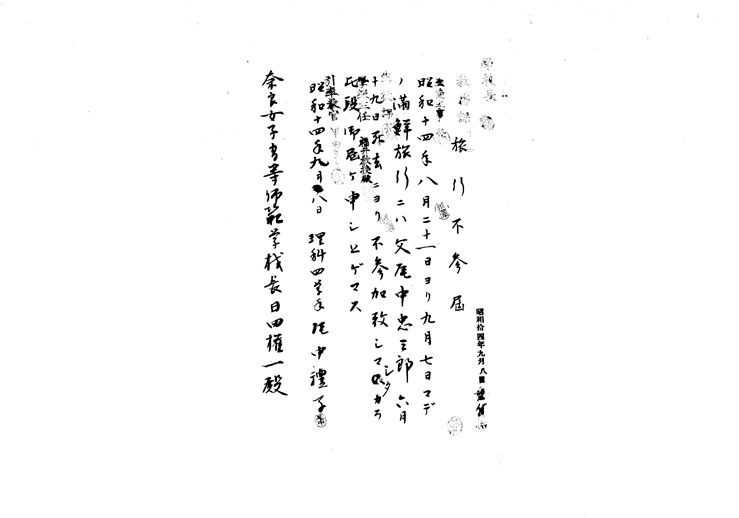 学校長
教務課
旅行不参届
昭和拾四年九月八日
昭和十四年八月二十一日ヨリ九月七日マデ
ノ満鮮旅行ニハ父尾中忠三郎六月
十九日死去ニヨリ不参加致シマシタカラ
此段御届ケ申シヒゲマス
昭和十四年九月八日 理科四学年 尾中禮子
引率教官
奈良女子高等師範学校長日田權一殿